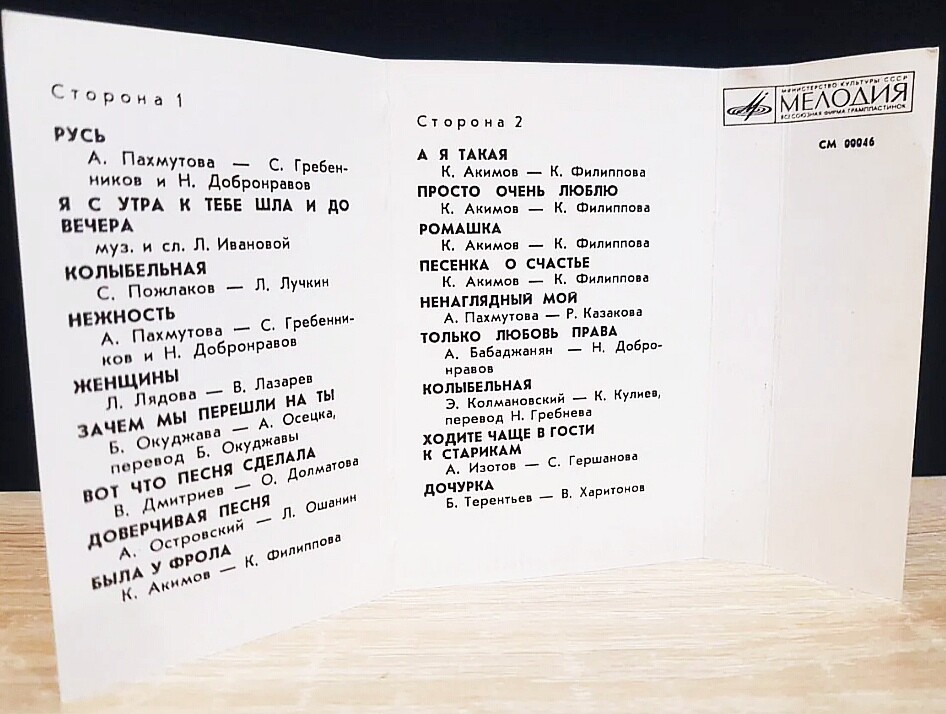 Сторона 1
РУСЬ
А. Пахмутова — С. Гребен-
ников и Н. Добронравов
Я С УТРА К ТЕБЕ ШЛА И ДО
ВЕЧЕРА
муз. и сл. Л. Ивановой
КОЛЫБЕЛЬНАЯ
С. Пожлаков — Л. Лучкин
НЕЖНОСТЬ
А. Пахмутова — С. Гребенни-
ков и Н. Добронравов
ЖЕНЩИНЫ
Л. Лядова — В. Лазарев
ЗАЧЕМ МЫ ПЕРЕШЛИ НА ТЫ
Б. Окуджава — А. Осецка,
перевод Б. Окуджавы
ВОТ ЧТО ПЕСНЯ СДЕЛАЛА
В. Дмитриев — О. Долматова
ДОВЕРЧИВАЯ ПЕСНЯ
А. Островский — Л. Ошанин
БЫЛА У ФРОЛА
К. Акимов — К. Филиппова
Сторона 2
А Я ТАКАЯ
К. Акимов — К. Филиппова
ПРОСТО ОЧЕНЬ ЛЮБЛЮ
К. Акимов — К. Филиппова
РОМАШКА
К. Акимов — К. Филиппова
ПЕСЕНКА О СЧАСТЬЕ
К. Акимов — К. Филиппова
НЕНАГЛЯДНЫЙ МОЙ
А. Пахмутова — Р. Казакова
ТОЛЬКО ЛЮБОВЬ ПРАВА
А. Бабаджанян — Н. Добро-
нравов
КОЛЫБЕЛЬНАЯ
Э. Колмановский — К. Кулиев,
перевод Н. Гребнева
ХОДИТЕ ЧАЩЕ В ГОСТИ
К СТАРИКАМ
А. Изотов — С. Гершанова
ДОЧУРКА
Б. Терентьев — В. Харитонов
МИНИСТЕРСТВО КУЛЬТУРЫ СССР
МЕЛОДИЯ
ВСЕСОЮЗНАЯ ФИРМА ГРАМПЛАСТИНОК
СМ 00046